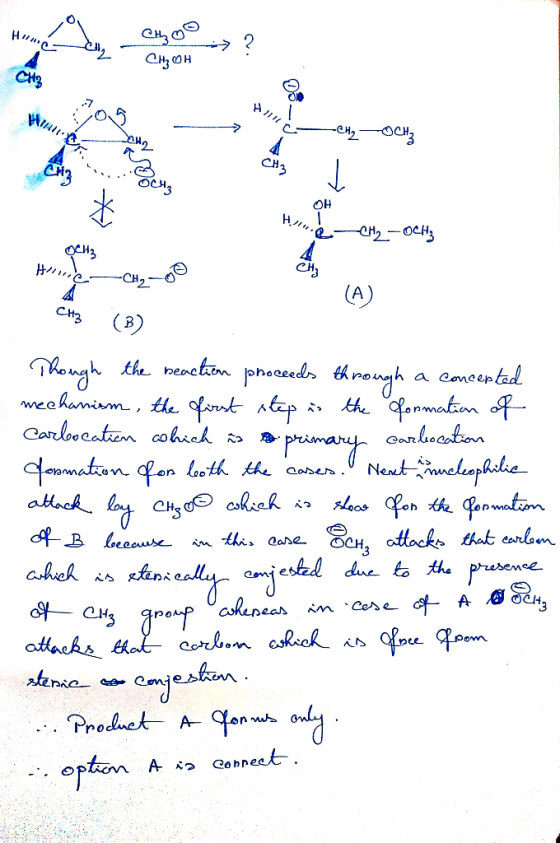 O
H C CH2 CH3O⊖ ?
CH3OH
CH3
⊖
O
H C CH2 O H C CH2 OCH3
CH3 ⊖OCH3 CH3
OH
OCH3 H C CH2 OCH3
H C CH2 O⊖ CH3
CH3 (B) (A)
Though the reaction proceeds through a concerted
mechanism, the first step is the formation of
carbocation which is primary carbocation
formation for both the cases. Next is nucleophilic
attack by CH3O⊖ which is slow for the formation
of B because in this case ⊖OCH3 attacks that carbon
which is sterically conjested due to the presence
of CH3 group whereas in case of A ⊖OCH3
attacks that carbon which is free from
steric conjestion.
∴ Product A forms only.
∴ option A is correct.